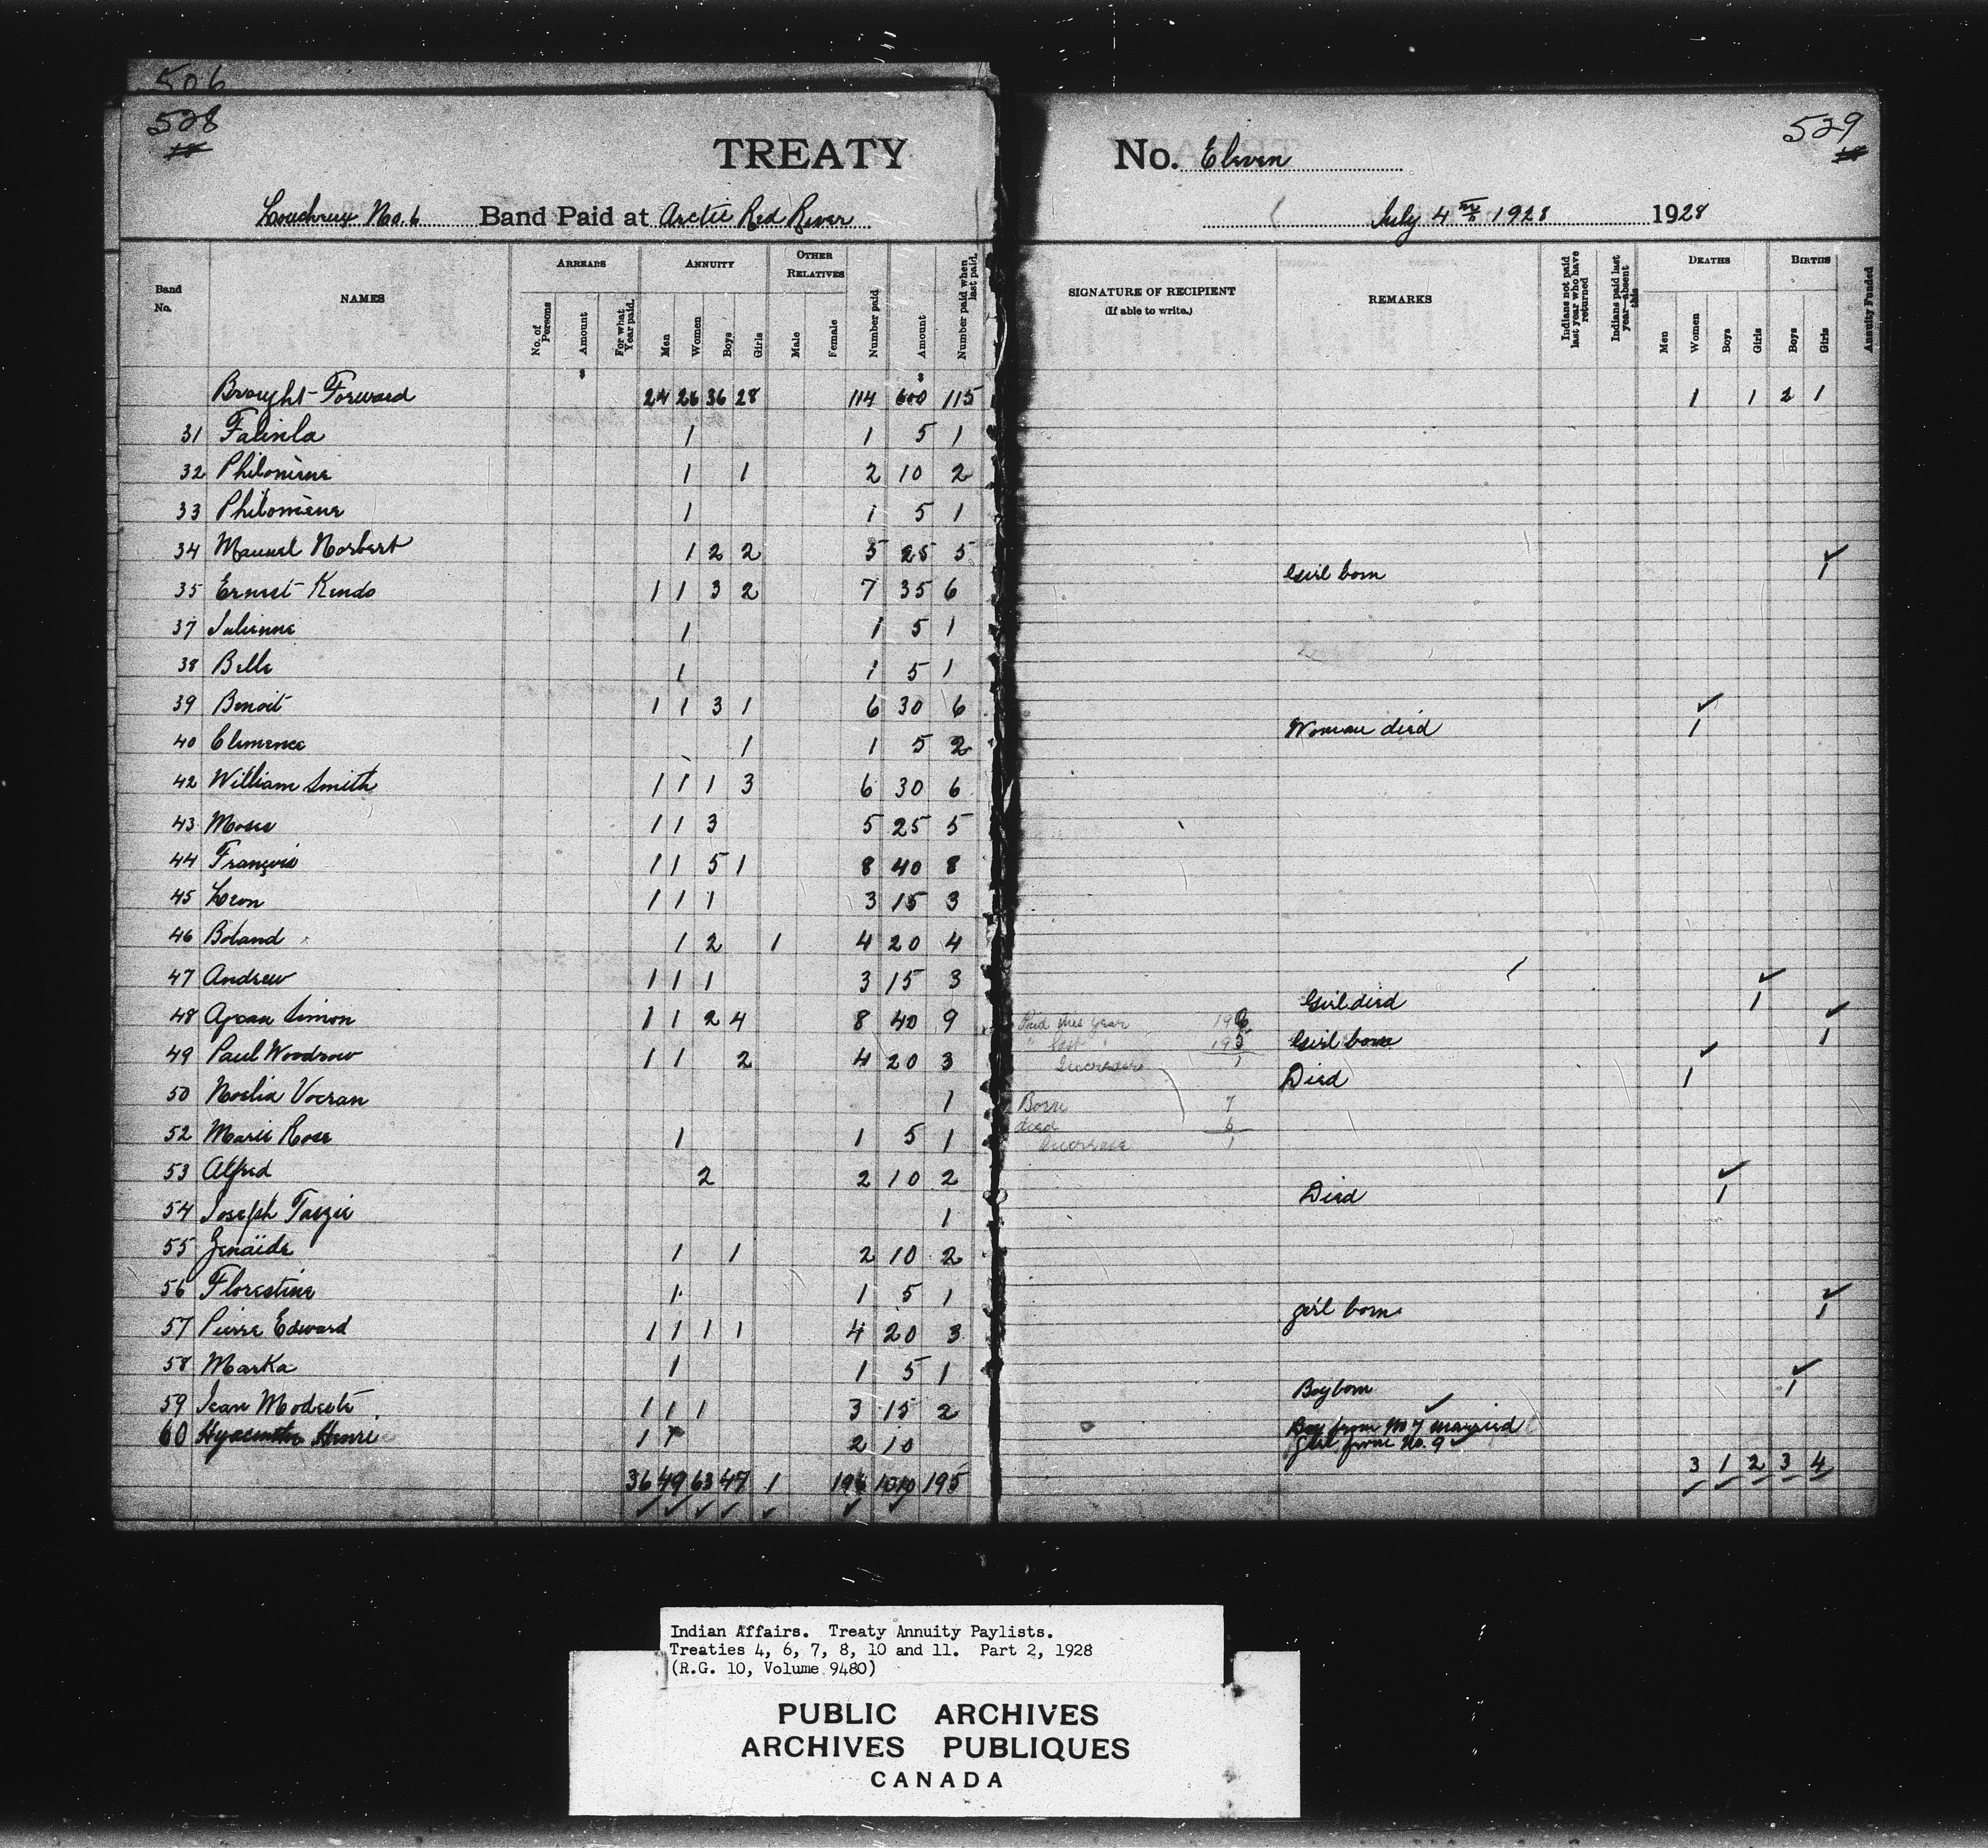 506
528
529
TREATY No. Eleven
Loucheux No. 6 Band Paid at Arctic Red River July 4th 1928 1928
Band No. NAMES ARREARS ANNUITY OTHER RELATIVES Number paid Amount Number paid when last paid.
No. of Persons Amount For what Year paid. Men Women Boys Girls Male Female
SIGNATURE OF RECIPIENT (If able to write.) REMARKS Indians not paid last year who have returned Indians paid last year—absent this DEATHS BIRTHS Annuity Funded
Men Women Boys Girls Boys Girls
$ $
Brought Forward 24 26 36 28 114 600 115 1 1 2 1
31 1 1 5 1
32 Philomène 1 1 2 10 2
33 Philomène 1 1 5 1
34 Manuel Norbert 1 2 2 5 25 5
35 Ernest Kendo 1 1 3 2 7 35 6 Girl born 1
37 Julienne 1 1 5 1
38 Belle 1 1 5 1
39 Benoit 1 1 3 1 6 30 6
40 Clemence 1 1 5 2 Woman died 1
42 William Smith 1 1 1 3 6 30 6
43 Moses 1 1 3 5 25 5
44 François 1 1 5 1 8 40 8
45 Leon 1 1 1 3 15 3
46 Boland 1 2 1 4 20 4
47 Andrew 1 1 1 3 15 3
48 Simon 1 1 2 4 8 40 9 Girl died 1
Paid this year 196
" last " 195
Increase 1
49 Paul Woodrow 1 1 2 4 20 3 Girl born 1
50 Noelia Vocran 1 Died 1
Born 7
died 6
Increase 1
52 Marie Rose 1 1 5 1
53 Alfred 2 2 10 2
54 Joseph Tazzie 1 Died 1
55 Zenaïde 1 1 2 10 2
56 Florestine 1 1 5 1
57 Pierre Edward 1 1 1 1 4 20 3 girl born 1
58 Marka 1 1 5 1
59 Jean Modeste 1 1 1 3 15 2 Boy born 1
60 Hyacinthe Henri 1 1 2 10 Boy from No 7 married
girl from No. 9
36 49 63 47 1 196 1010 195 3 1 2 3 4
Indian Affairs. Treaty Annuity Paylists.
Treaties 4, 6, 7, 8, 10 and 11. Part 2, 1928
(R.G. 10, Volume 9480)
PUBLIC ARCHIVES
ARCHIVES PUBLIQUES
CANADA